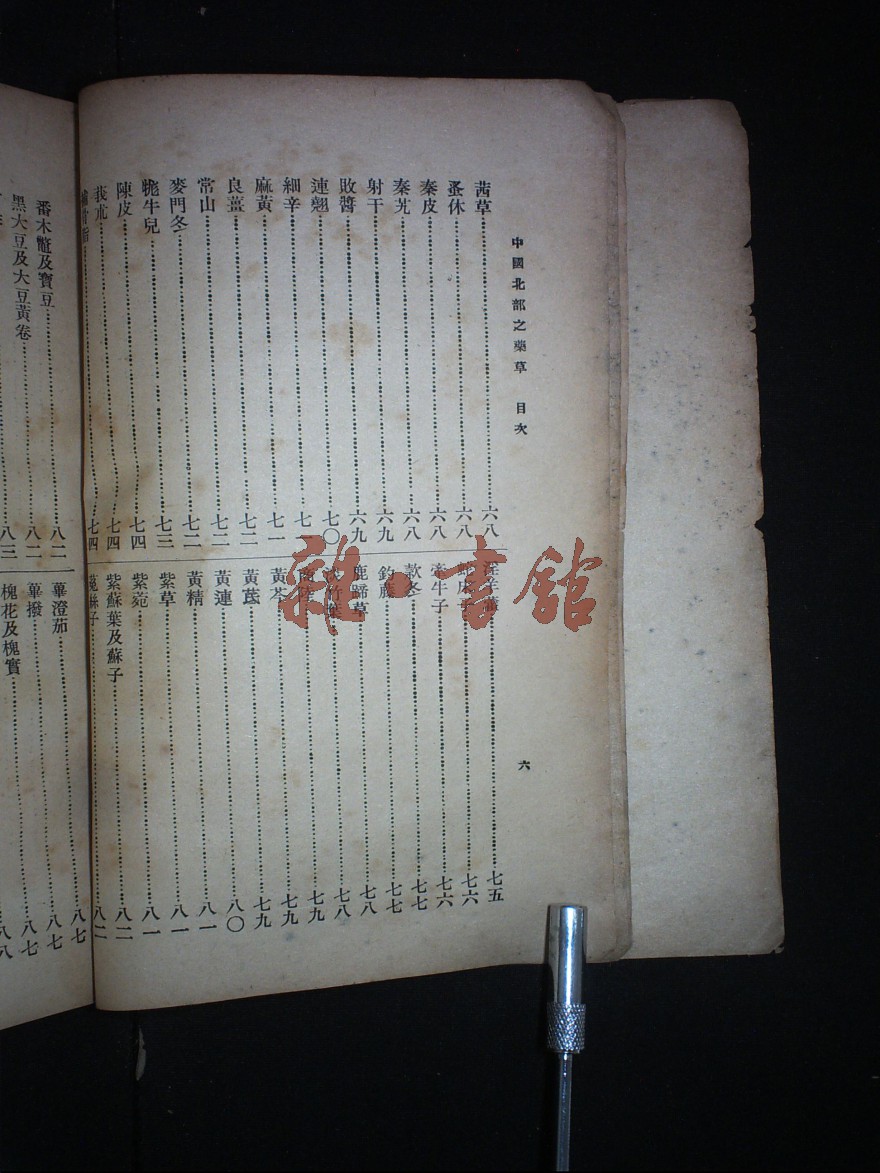 中國北部之藥草 目次
六
茜草 六八
蚤休 六八
秦皮 六八
秦艽 六八
射干 六九
敗醬 六九
連翹 七〇
細辛 七一
麻黃 七一
良薑 七二
常山 七二
麥門冬 七二
牻牛兒 七三
陳皮 七四
莪朮 七四
七四
淫羊藿 七五
蛇床子 七六
牽牛子 七六
款冬 七七
釣藤 七七
鹿蹄草 七八
淡竹葉 七八
商陸 七九
黃芩 七九
黃茋 七九
黃連 八〇
黃精 八一
紫草 八一
紫菀 八一
紫蘇葉及蘇子 八二
菟絲子 八二
番木鼈及寶豆 八二
黑大豆及大豆黃卷 八二
八三
八七
蓽澄茄 八七
蓽撥 八七
槐花及槐實 八八
雜·書館